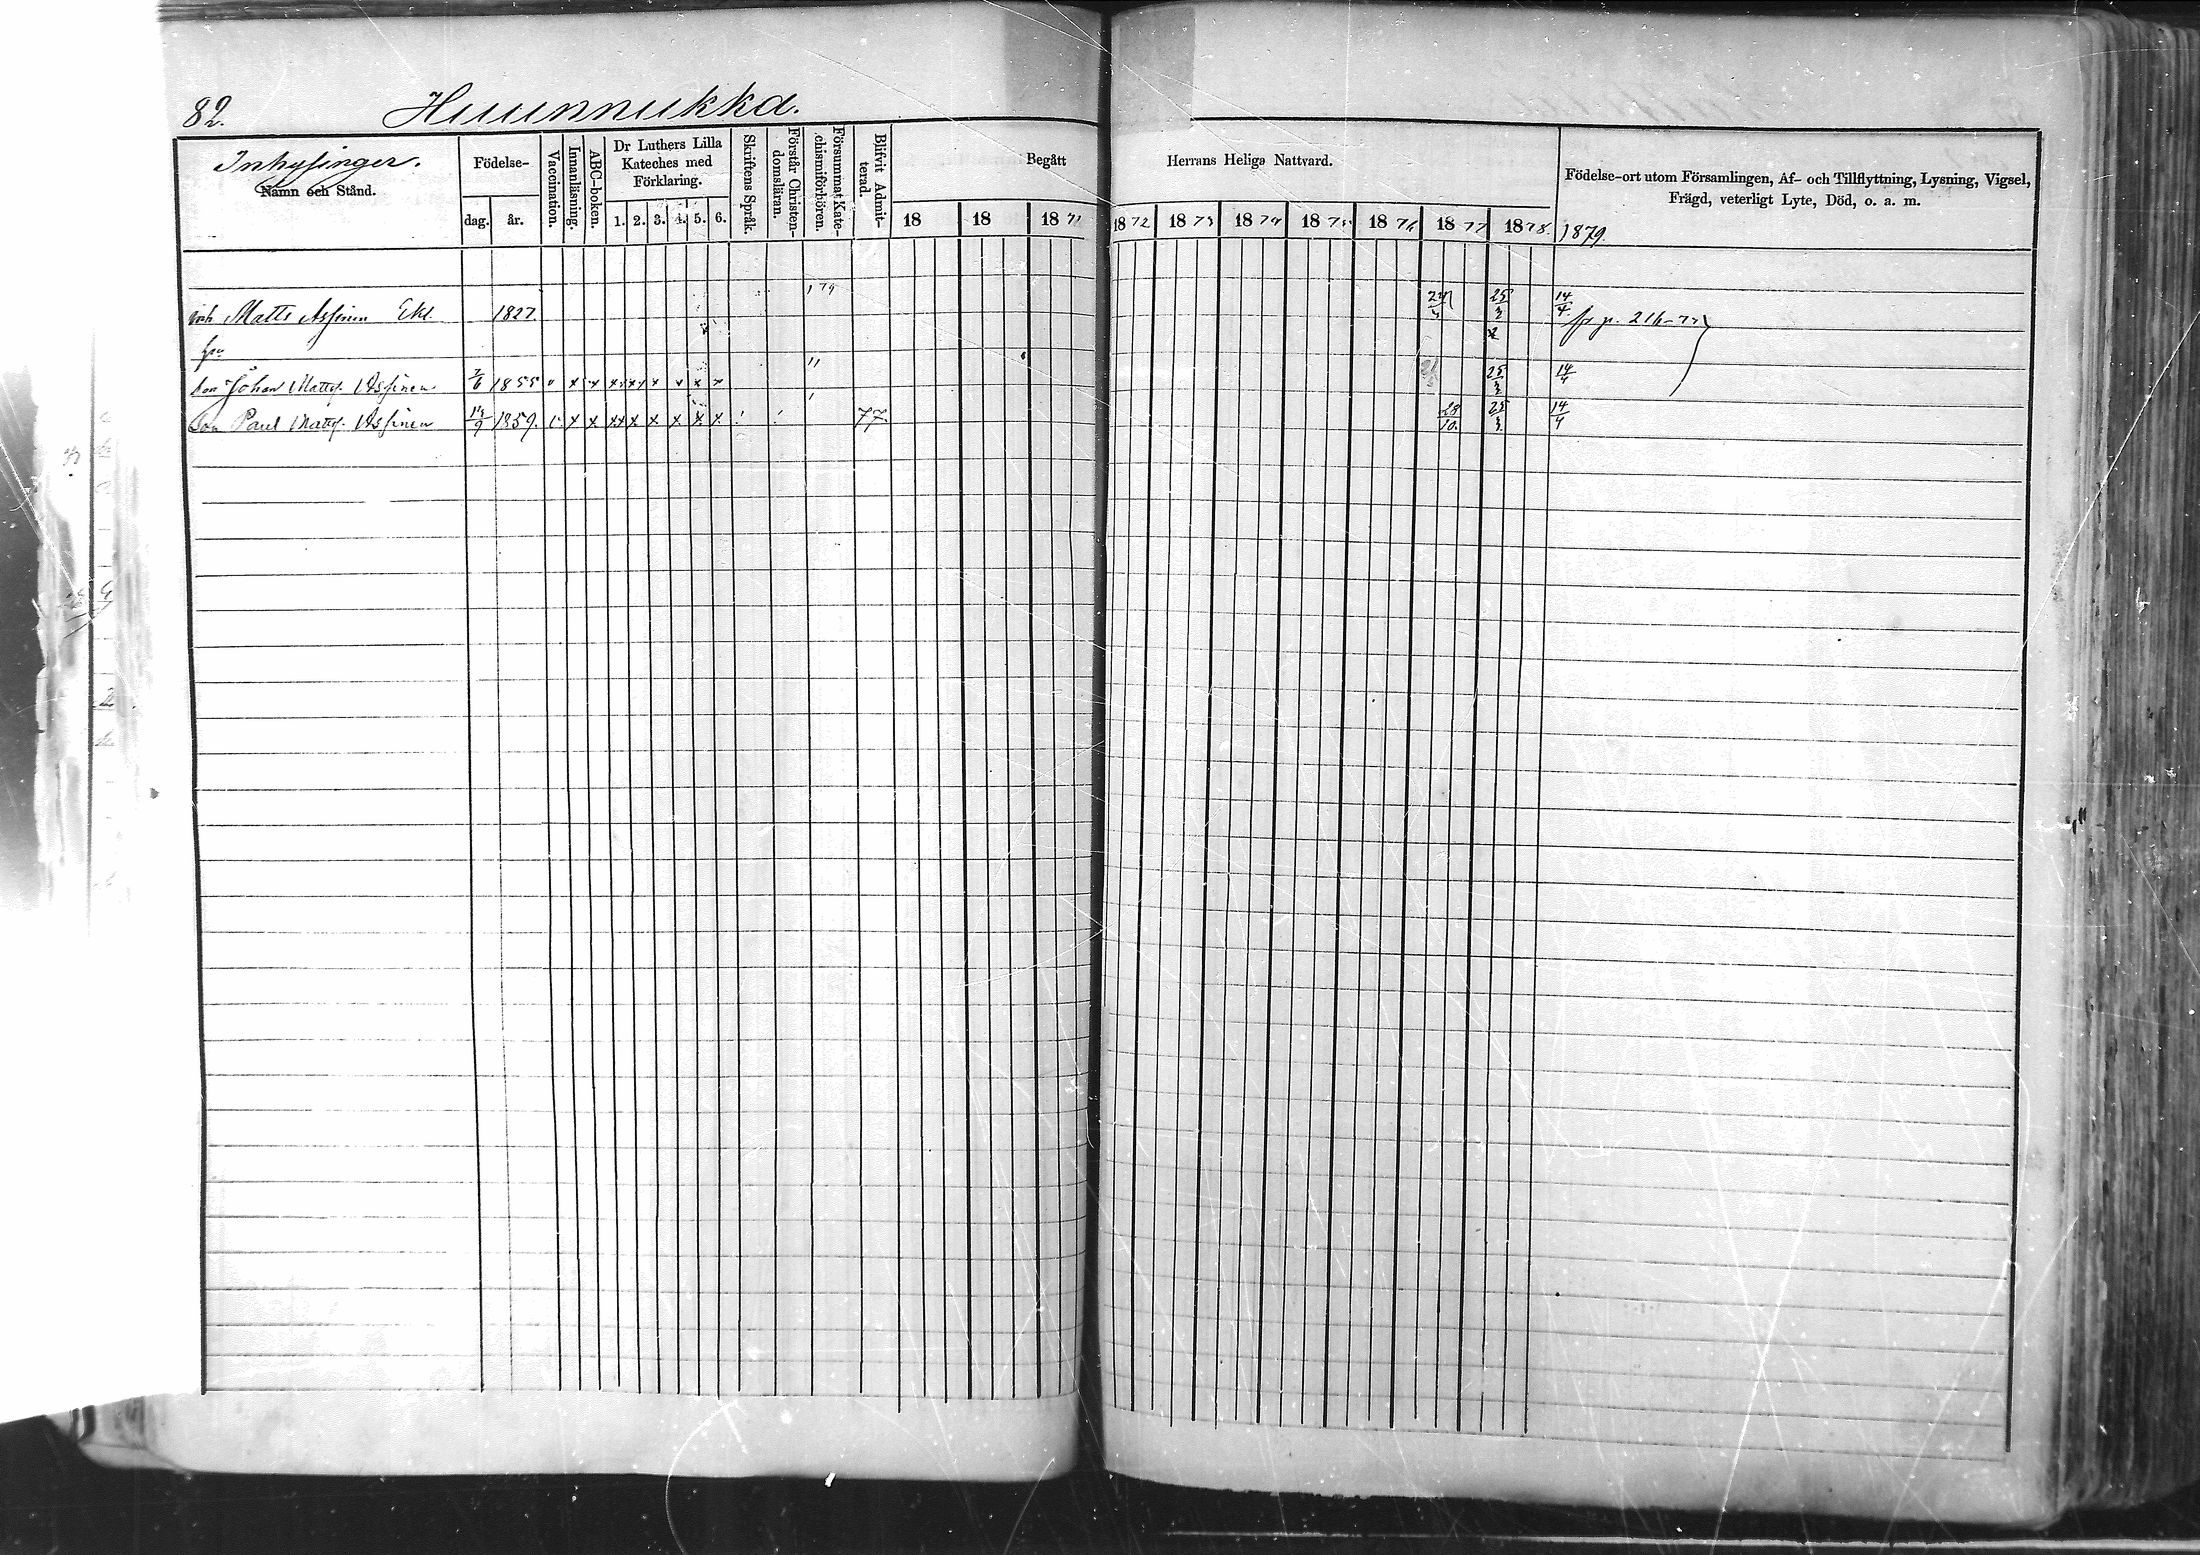 82. Huunnukka.
Inhysinger.
Namn och Stånd.
Födelse-
dag. år.
Vaccination.
Innanläsning.
ABC-boken.
Dr Luthers Lilla
Kateches med
Förklaring.
1. 2. 3. 4. 5. 6.
Skriftens Språk.
Förstår Christen-
domsläran.
Försummat Kate-
chismiförhören.
Blifvit Admit-
terad.
Begått Herrans Heliga Nattvard.
18 18 1871 1872 1873 1874 1875 1876 1877 1878
Födelse-ort utom Församlingen, Af- och Tillflyttning, Lysning, Vigsel,
Frägd, veterligt Lyte, Död, o. a. m.
1879.
Matts Assinen 1827. 25/3 14/4 fr p. 216-77
Son Johan Matts. Assinen 1855 x x x x x x x x 25/3 14/4
Son Paul Matts. Assinen 1859. x x x x x x x x 77. 28/10. 25/3 14/4